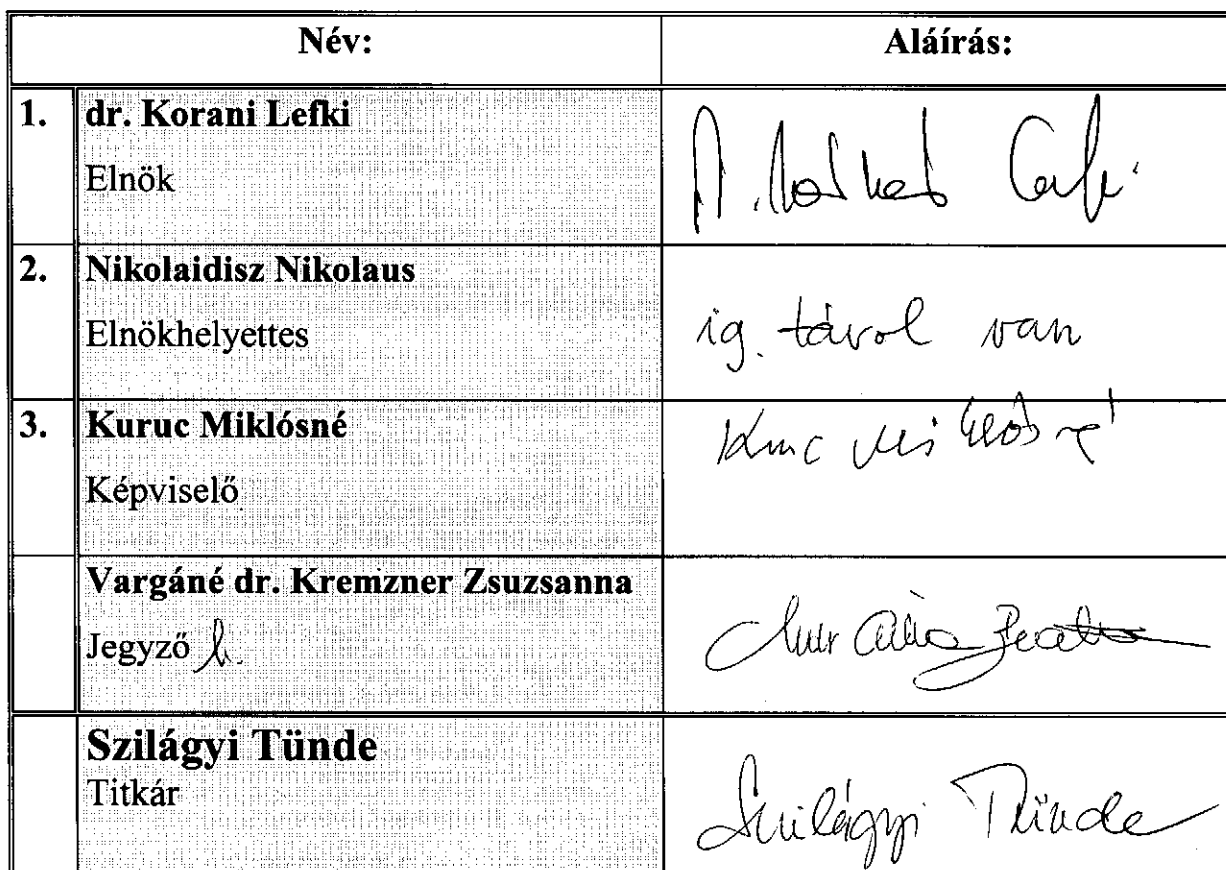 Név: Aláírás:
1. dr. Korani Lefki
Elnök
2. Nikolaidisz Nikolaus
Elnökhelyettes ig. távol van
3. Kuruc Miklósné Kuruc Miklósné
Képviselő
Vargáné dr. Kremzner Zsuzsanna
Jegyző h.
Szilágyi Tünde
Titkár Szilágyi Tünde